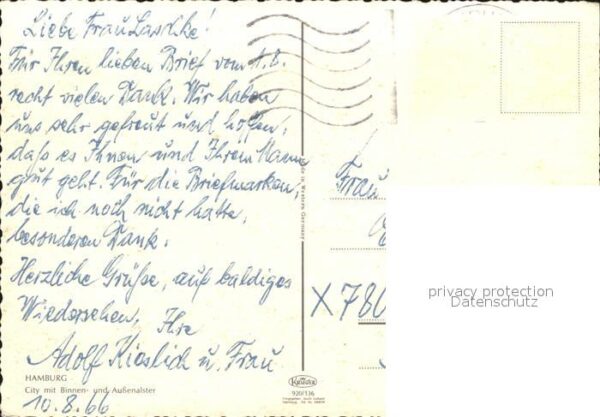 Liebe Frau Laschke!
Für Ihren lieben Brief vom 1.8.
recht vielen Dank. Wir haben
uns sehr gefreut und hoffen,
daß es Ihnen und Ihrem Mann
gut geht. Für die Briefmarken,
die ich noch nicht hatte,
besonderen Dank.
Herzliche Grüße, auf baldiges
Wiedersehen, Ihre
Adolf Kieslich u. Frau
HAMBURG
City mit Binnen- und Außenalster
10.8.66
Made in Western Germany
Krüger
920/136
Frau
X 780
privacy protection
Datenschutz